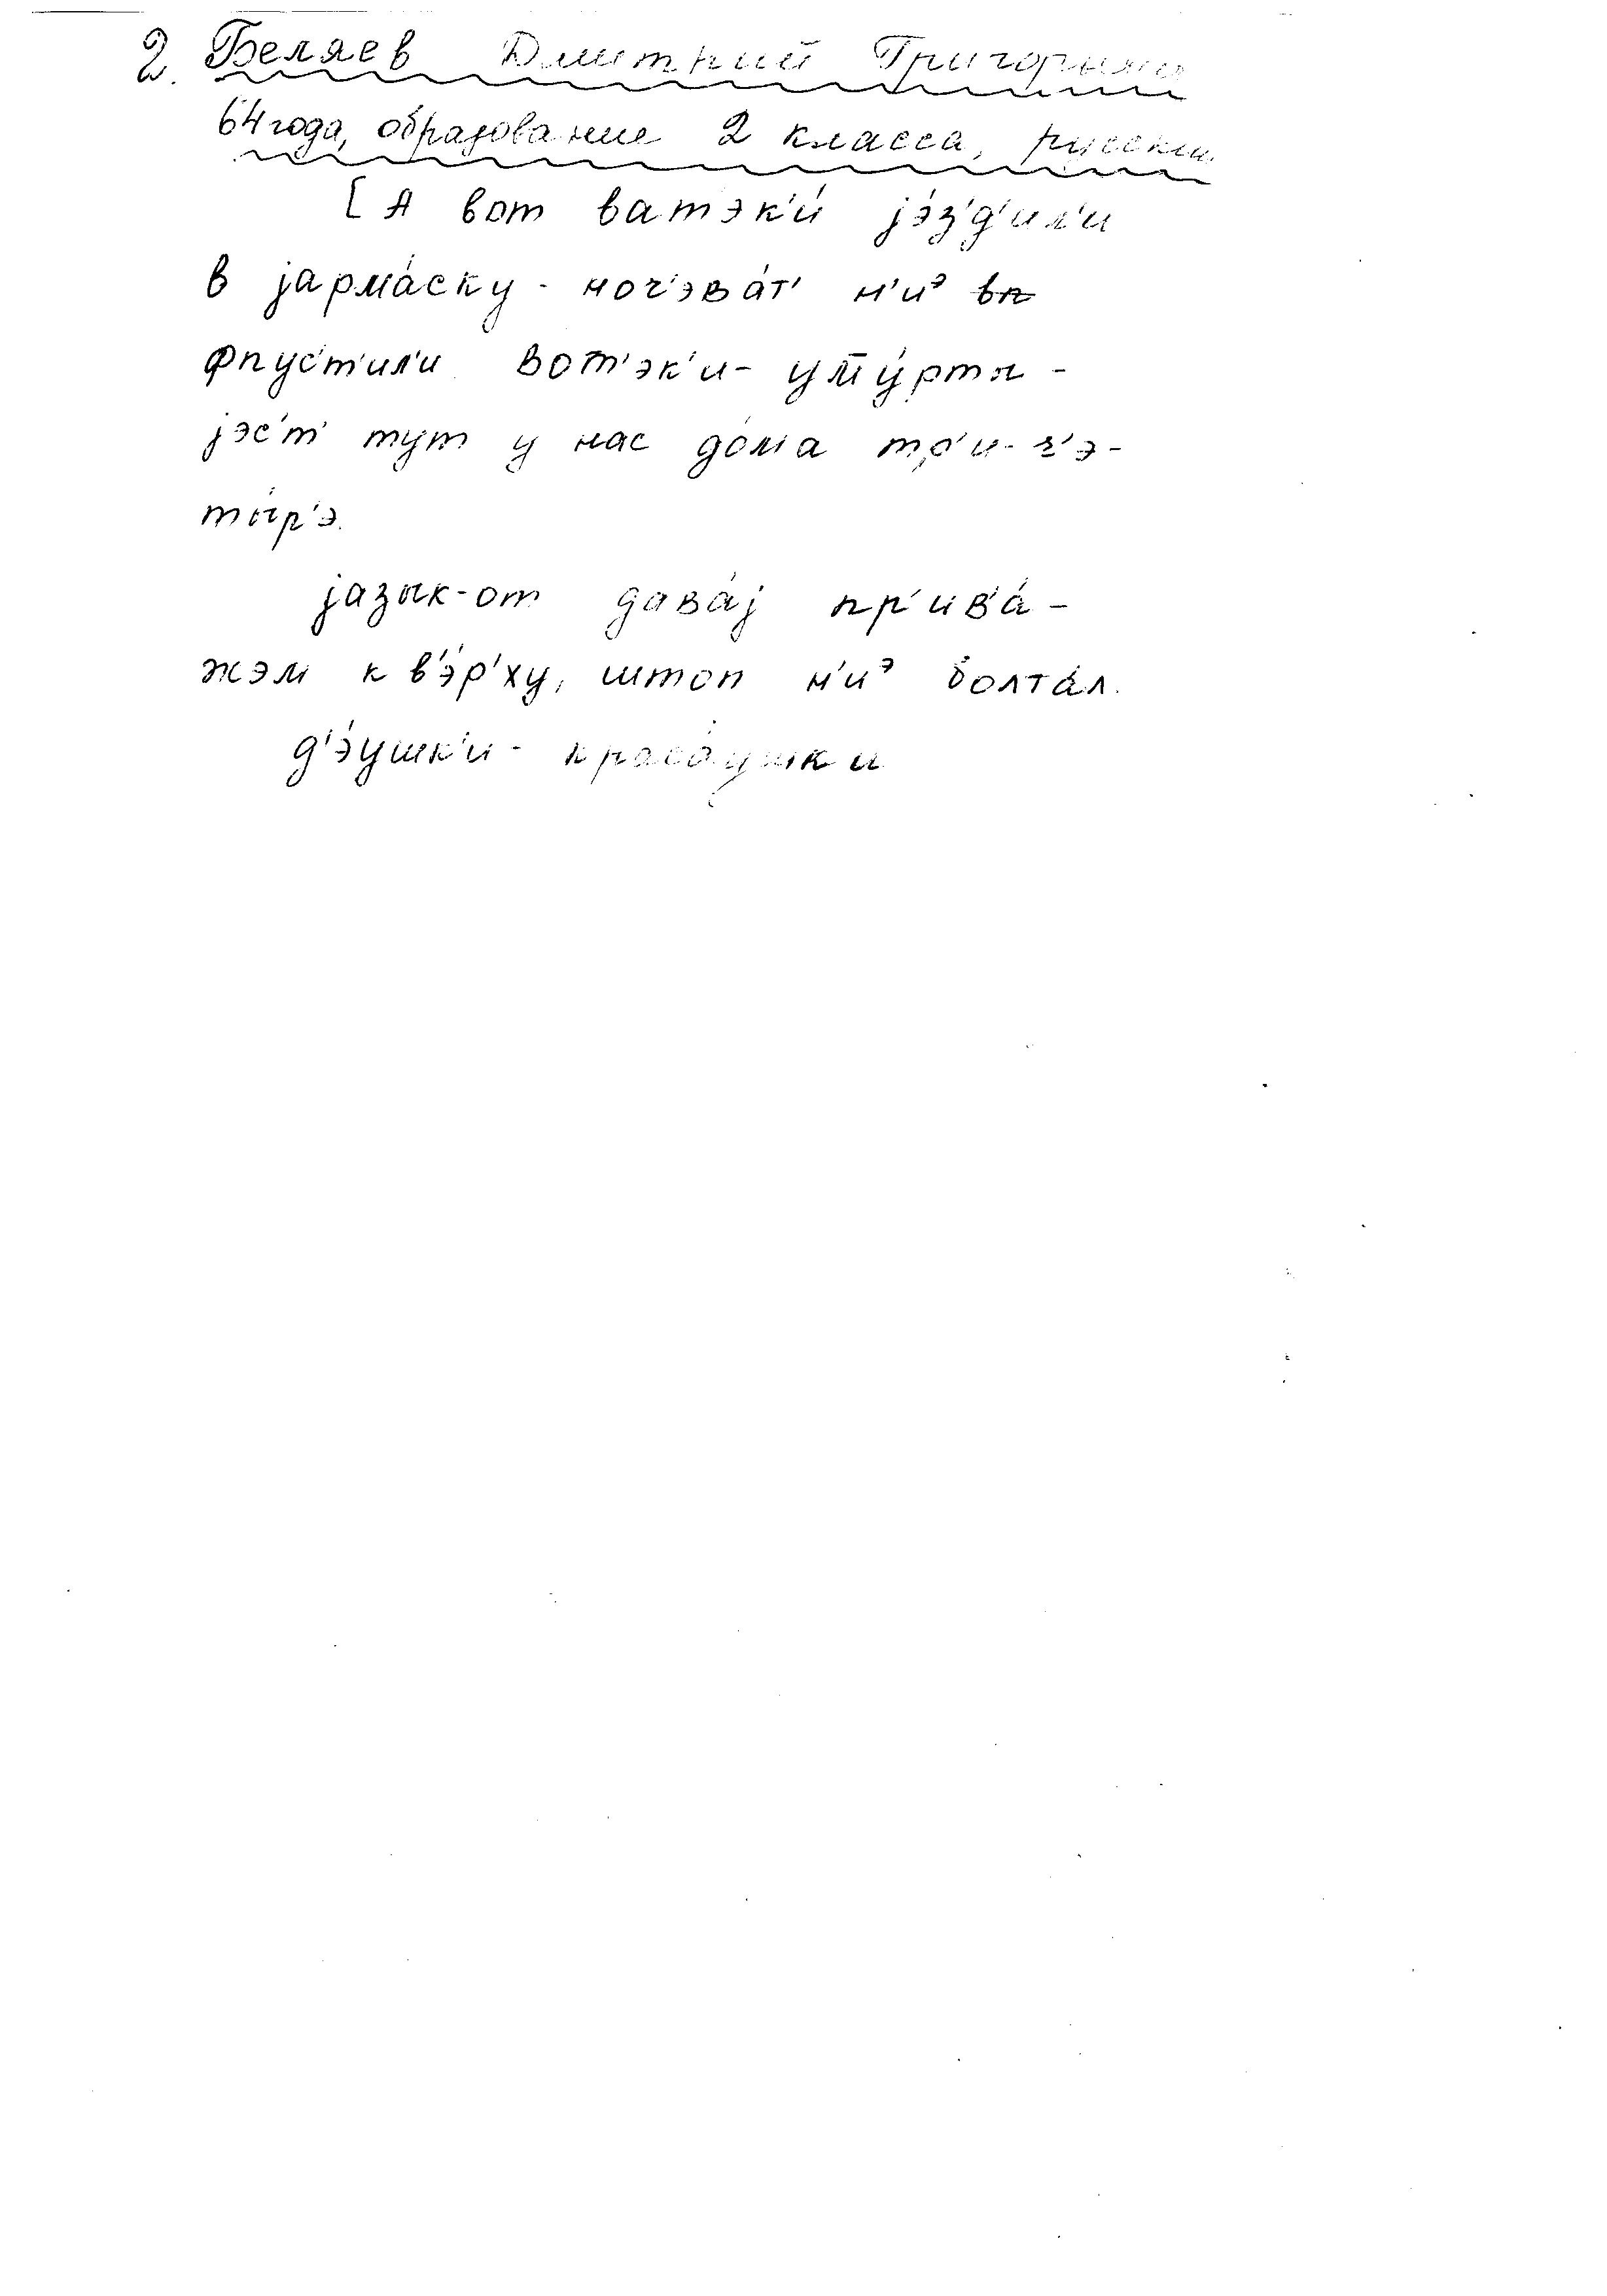 2. Беляев Дмитрий Григорьевич
64 года, образование 2 класса, русский.
[А вот ватэк'и́ jэ́з'д'ил'и
в jарма́ску - ноч'эва́т' н'иᵊ ~~вп~~
фпус'т'ил'и вот'эк'и - уму́рты -
jэс'т' тут у нас до́ма тр'и - ч'э-
ты́р'э.
jазык-от дава́j пр'ив'а́-
жэм к в'э́р'ху, штоп н'иᵊ болта́л.
д'э́ушк'и - красо́ушки